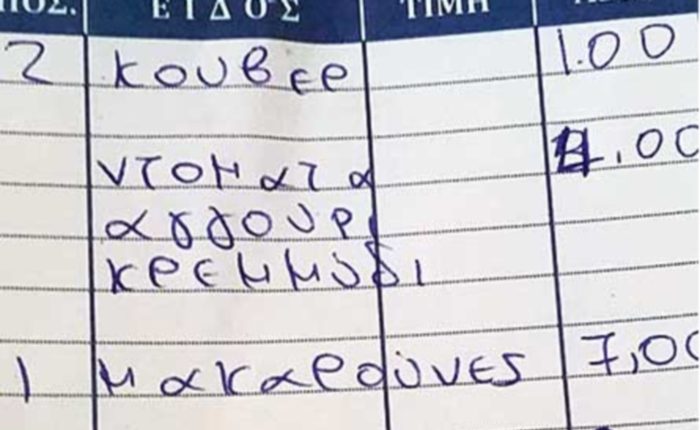 ΠΟΣ. ΕΙΔΟΣ ΤΙΜΗ
2 κουβερ 1.00
ντοματα 4,00
αγγουρι
κρεμμυδι
1 μακαρούνες 7,00